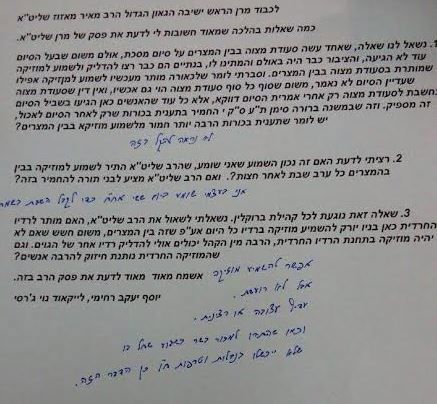 לכבוד מרן הראש ישיבה הגאון הגדול הרב מאיר מאזוז שליט"א
כמה שאלות בהלכה שמאוד חשובות לי לדעת את פסק של מרן שליט"א.
1. נשאל לנו שאלה, שאחד עשה סעודת מצוה בבין המצרים על סיום מסכת, אולם משום שבעל הסיום
עוד לא הגיעה, והציבור כבר היה באולם והמתינו לו, בנתיים הם כבר רצו להדליק ולשמוע למוזיקה
שמותרת בסעודת מצוה בבין המצרים. וסברתי לומר שלכאורה מותר מעכשיו לשמוע למוזיקה אפילו
שעדיין הסיום לא נאמר, משום שסוף כל סוף סעודת מצוה הוי גם אכשיו, ואין דין שסעודת מצוה
נחשבת לסעודת מצוה רק אחרי אמרית הסיום דווקא, אלא כל עוד שהאנשים כאן הגיעו בשביל הסיום
זה מספיק. וזה שבמשנה ברורה סימן ת"ע ס"ק י החמיר בתענית בכורות שרק לאחר הסיום לאכול,
יש לומר שתענית בכורות הרבה יותר חמור מלשמוע מוזיקא בבין המצרים?
לא נראה להקל בזה
2. רציתי לדעת האם זה נכון השמוע שאני שומע, שהרב שליט"א התיר לשמוע למוזיקה בבין
בהמצרים כל ערב שבת לאחר חצות?. ואם הרב שליט"א מציע לבני תורה להחמיר בזה?
אני בעצמי שומע ביום ששי אחה"צ כדי לקבל השבת בשמחה
3. שאלה זאת נוגעת לכל קהילת ברוקלין. נשאלתי לשאול את הרב שליט"א, האם מותר לרדיו
החרדית כאן בניו יורק להשמיע מוזיקה ברדיו כל היום אע"פ שזה בין המצרים, משום חשש שאם לא
יהיה מוזיקה בתחנת הרדיו החרדית, הרבה מין הקהל יכולים אולי להדליק רדיו אחר של הגוים. וגם
שהמוזיקה החרדית נותנת חיזוק להרבה אנשים?
אשמח מאוד מאוד לדעת את פסק הרב בזה.
יוסף יעקב רחימי, לייקאוד נוי ג'רסי
אפשר להשמיע מוזיקה
אבל לא רועשת.
עדיף עצובה או רצינית.
וכמו שהתירו למכור בשר בשבוע שחל בו
שלא ייכשלו בנבלות וטרפות ח"ו כן הדבר הזה.